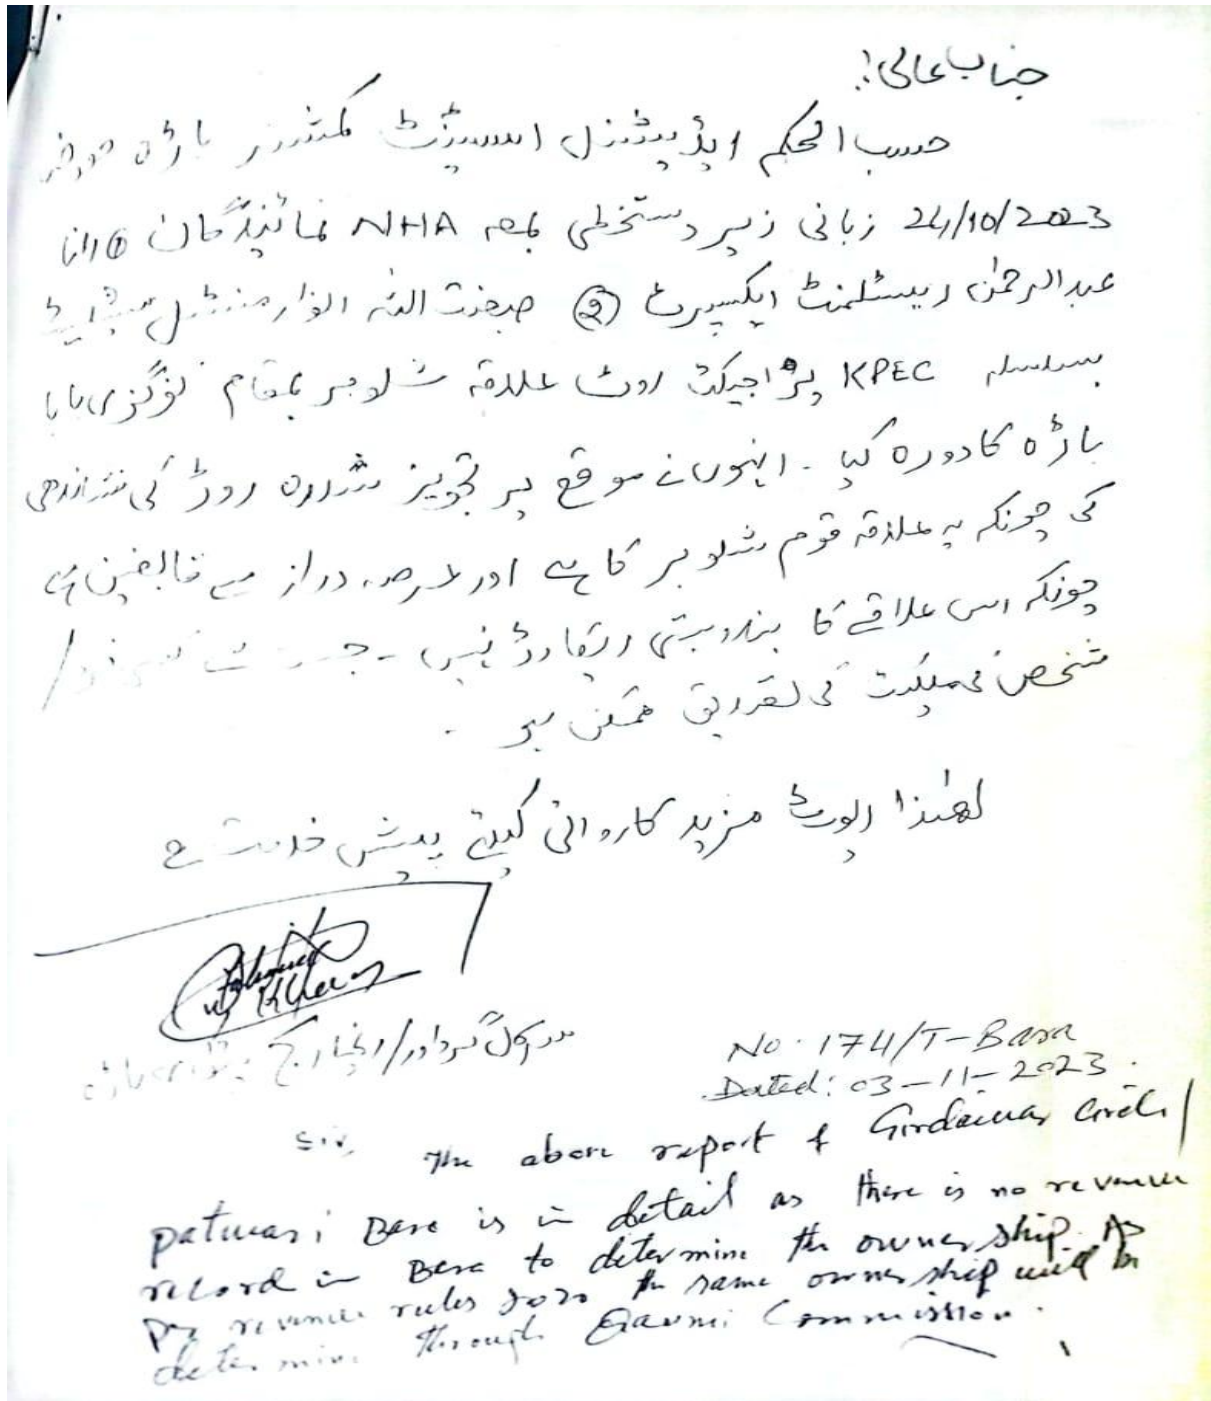 جناب عالی!
حسب الحکم ایڈیشنل اسسٹنٹ کمشنر باڑہ مورخہ
24/10/2023 زبانی زیر دستخطی بمعہ NHA نمائندگان ① رانا
عبدالرحمٰن ریسٹلمنٹ ایکسپرٹ ② صبغت اللہ انوارمنٹل
بسلسلہ KPEC پراجیکٹ روٹ علاقہ شلوبر بمقام نوگزی بابا
باڑہ کا دورہ کیا ۔ انہوں نے موقع پر تجویز شدہ روڈ کی نشاندھی
کی چونکہ یہ علاقہ قوم شلوبر کا ہے اور عرصہ دراز سے قابضین ہے
چونکہ اس علاقے کا بندوبستی ریکارڈ نہیں ۔ جس سے کسی فرد /
شخص کی ملکیت کی تصدیق ممکن ہو ۔
لھٰذا رپورٹ مزید کاروائی کیلئے پیش خدمت ہے
Khan
سرکل گرداور/انچارج پٹواری باڑہ
No. 174/T-Bara
Dated: 03-11-2023.
Sir,
The above report of Girdawar Circle/
patwari Bara is in detail as there is no revenue
record in Bara to determine the ownership. As
per revenue rules 2020 the same ownership will be
determine through Qaumi Commission.